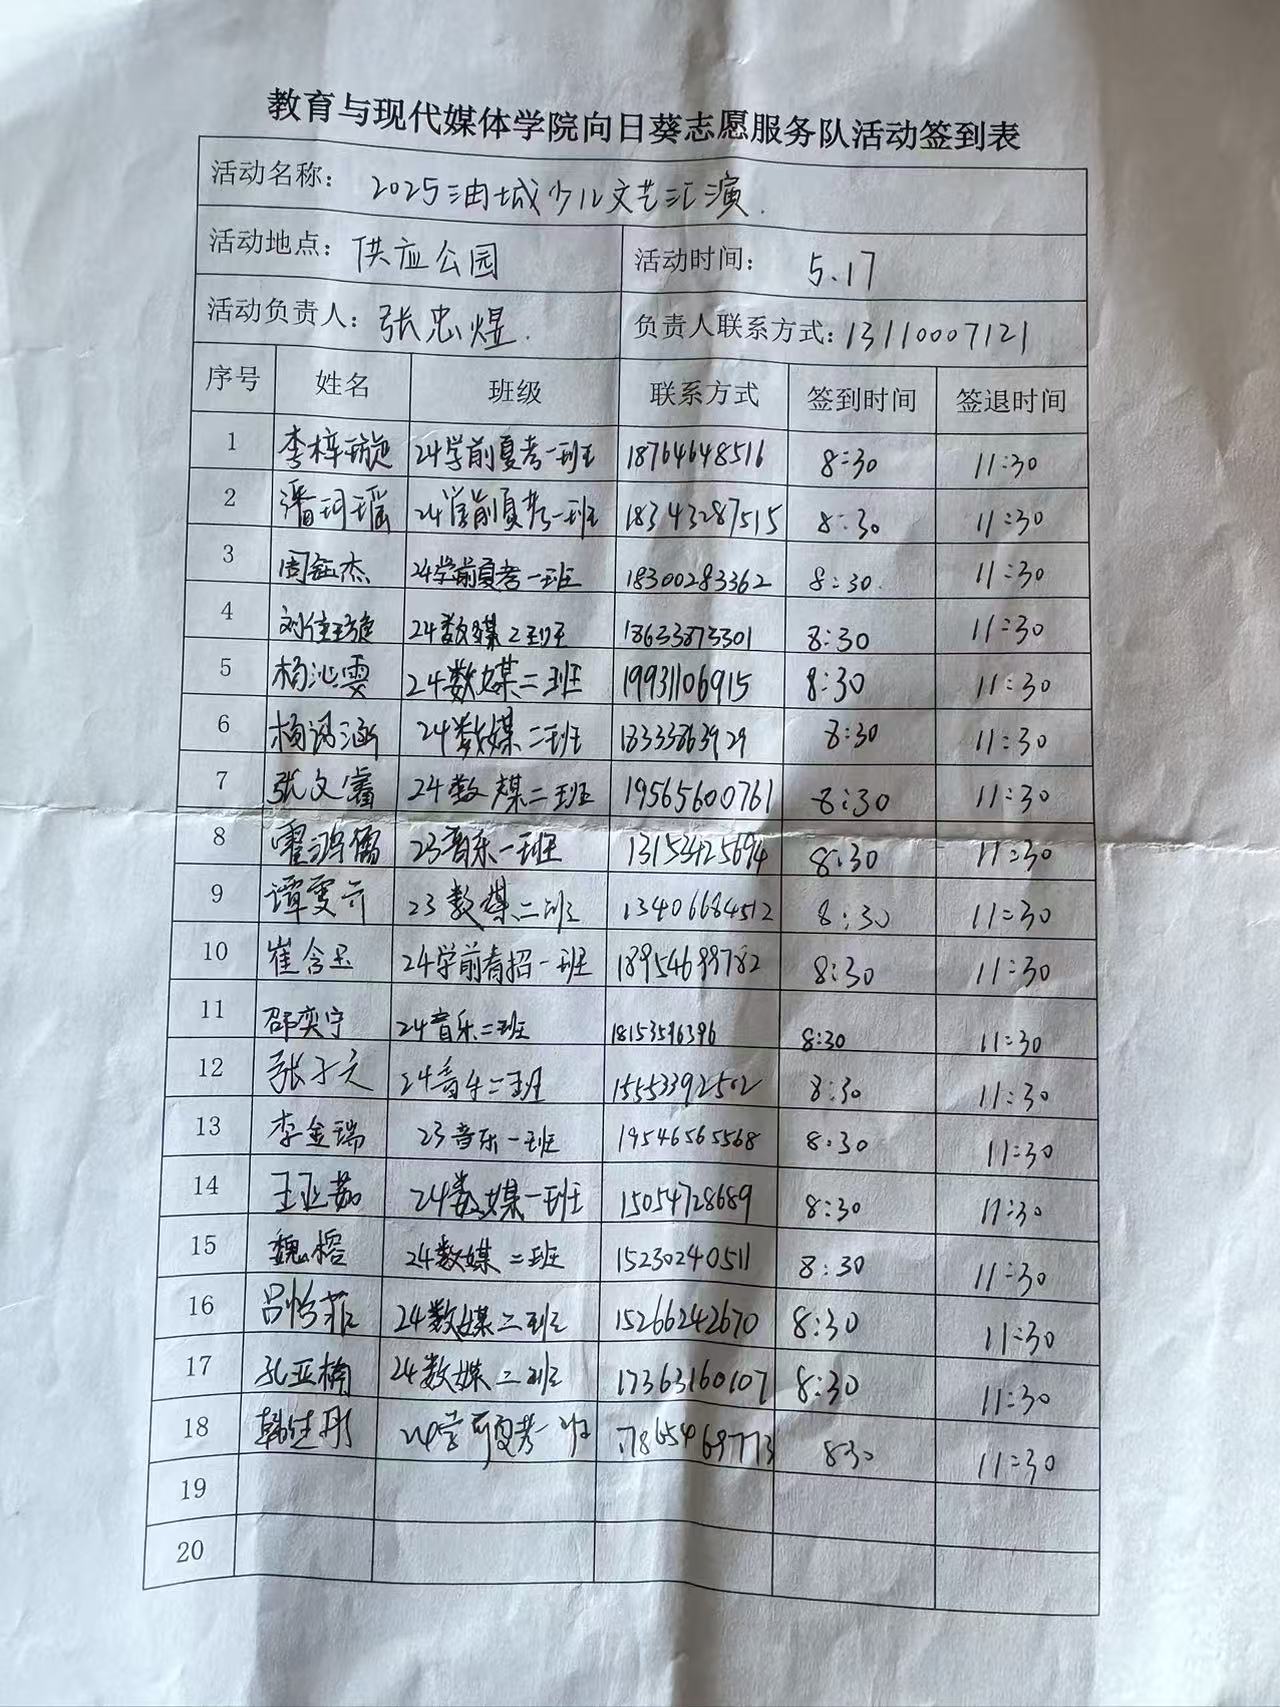 教育与现代媒体学院向日葵志愿服务队活动签到表
活动名称: 2025油城少儿文艺汇演.
活动地点: 供应公园 活动时间: 5.17
活动负责人: 张忠煜. 负责人联系方式: 13110007121
序号 姓名 班级 联系方式 签到时间 签退时间
1 李梓璇 24学前夏考一班 18764648516 8:30 11:30
2 潘珂瑶 24学前夏考一班 18343287515 8:30 11:30
3 周钰杰 24学前夏考一班 18300283362 8:30. 11:30
4 刘佳璇 24数媒2班 18633873301 8:30 11:30
5 杨沁雯 24数媒二班 19931106915 8:30 11:30
6 杨涵 24数媒二班 18333863929 8:30 11:30
7 张文馨 24数媒二班 19565600761 8:30 11:30
8 霍鸿儒 23音乐一班 13153425694 8:30 11:30
9 谭雯 23数媒二班 13406684512 8:30 11:30
10 崔含玉 24学前春招一班 18954699782 8:30 11:30
11 邵奕宁 24音乐二班 18153596396 8:30 11:30
12 张子文 24音乐二班 15553392502 8:30 11:30
13 李金瑞 23音乐一班 19546565568 8:30 11:30
14 王亚茹 24数媒一班 15054728689 8:30 11:30
15 魏榕 24数媒二班 15230240511 8:30 11:30
16 吕怡菲 24数媒二班 15266242670 8:30 11:30
17 孔亚楠 24数媒二班 17363160107 8:30 11:30
18 韩佳彤 24学前夏考一班 17865469773 830 11:30
19
20